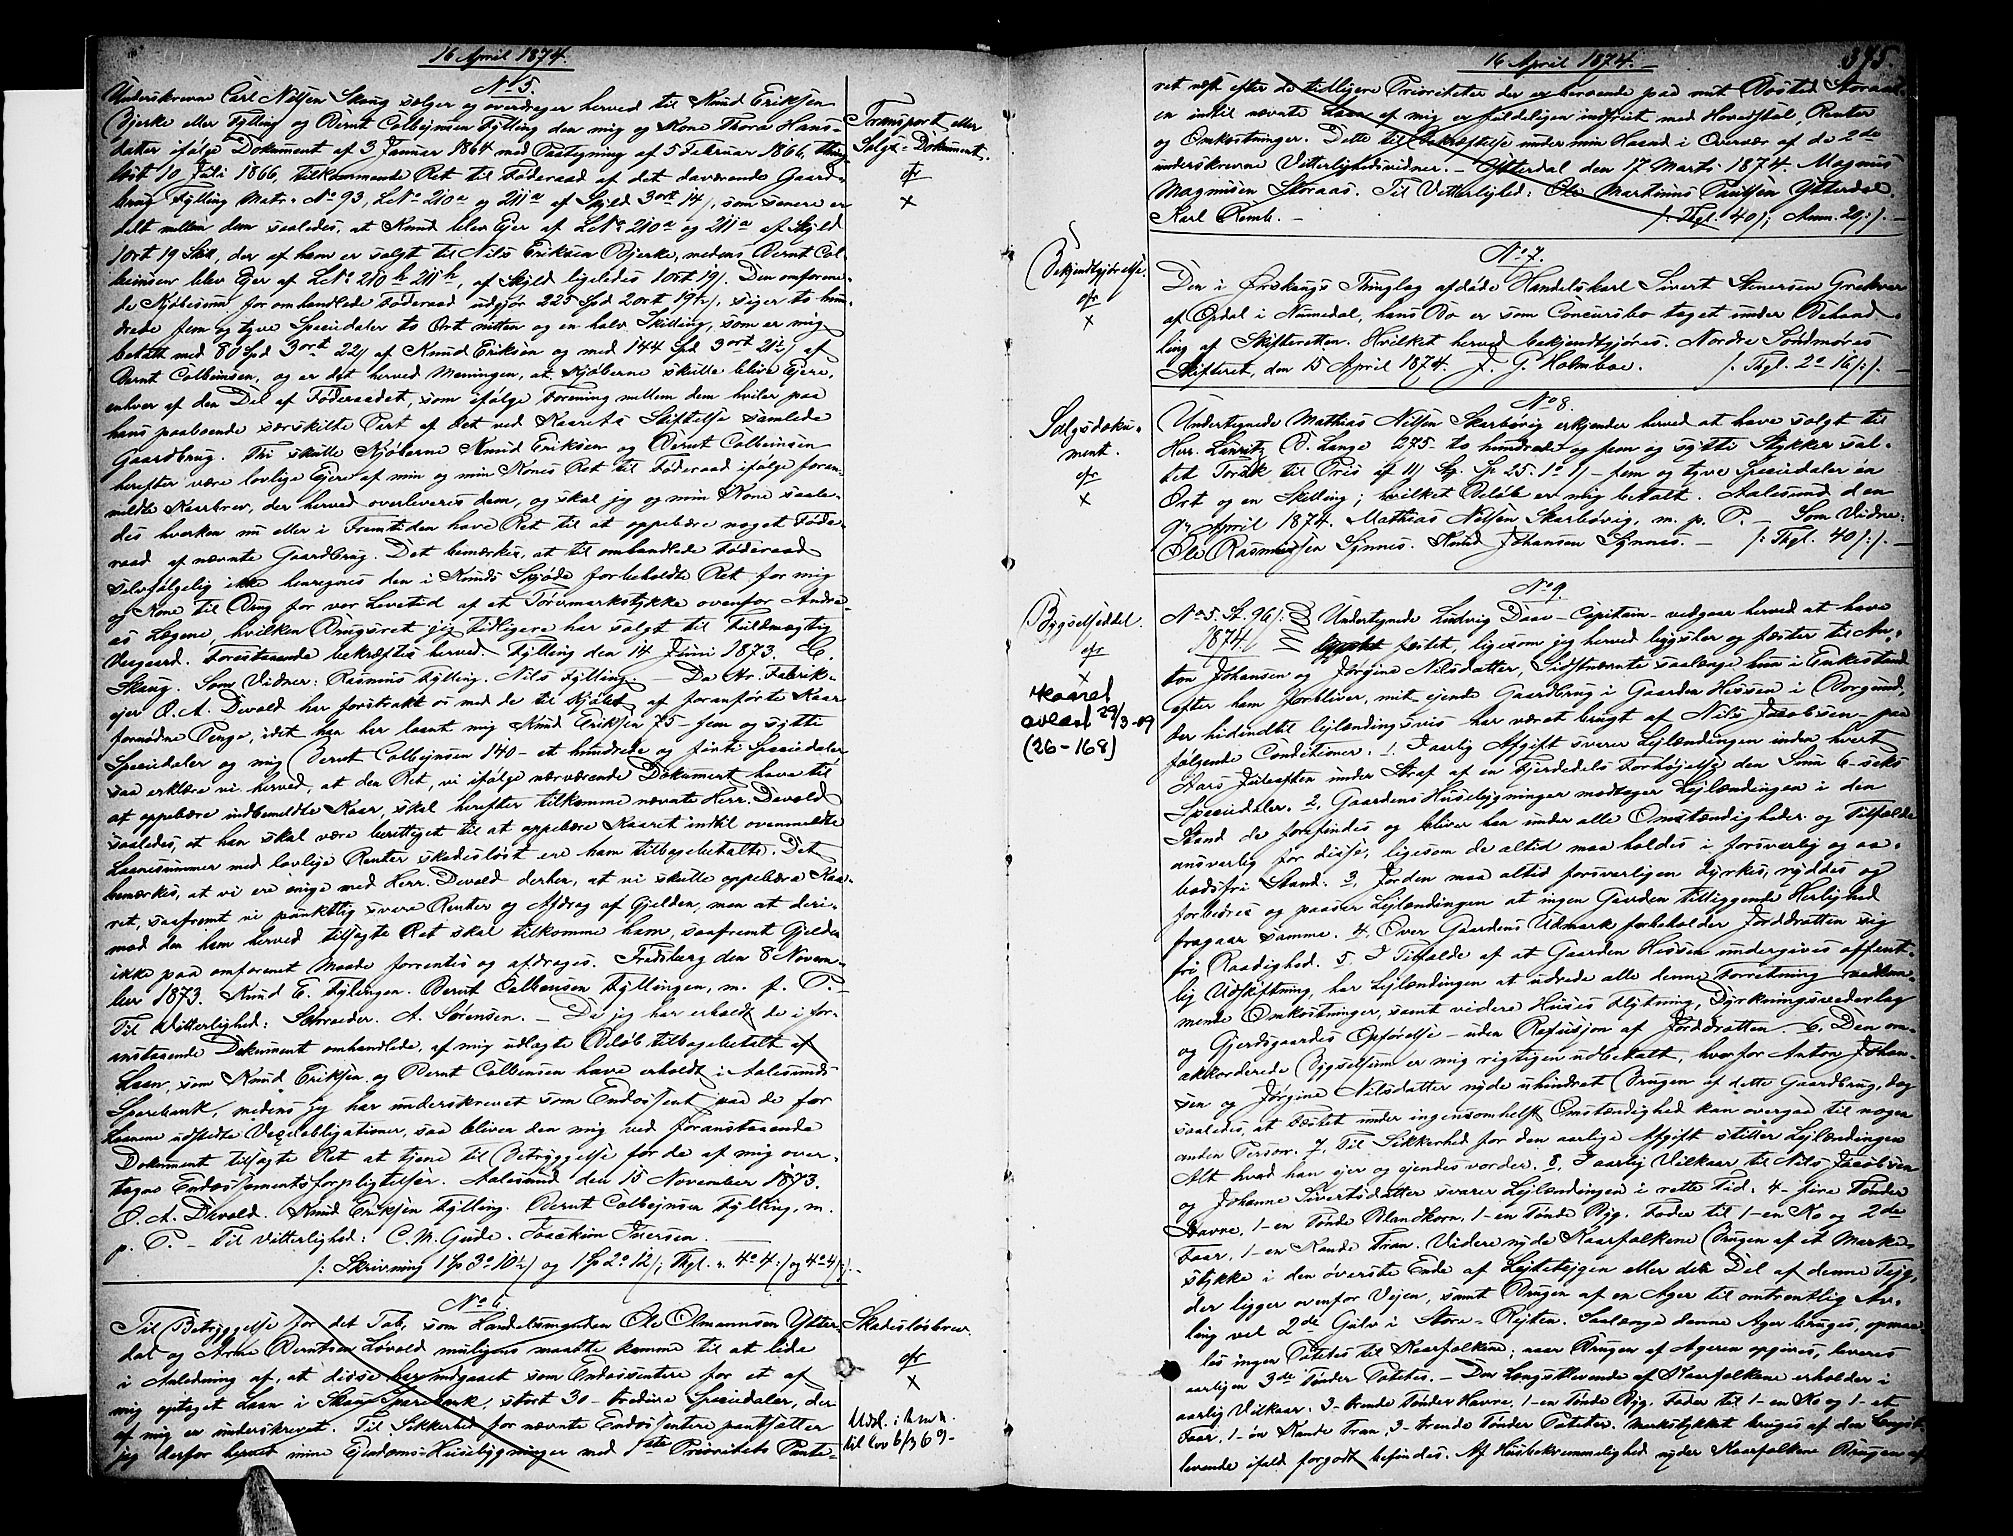 16 April 1874.
No 5.
Underskrevne Carl Nilsen Skaug sælger og overdrager herved til Knud Eriksen
Bjerke eller Fylling og Bernt Colbejnsen Fylling den mig og Kone Thora Hans-
datter ifølge Dokument af 3 Januar 1864 med Paategning af 5 Februar 1866, thing-
lyst 10 Juli 1866, tilkommende Ret til Føderaad af det daværende Gaard-
brug Fylling Matr. No 93, LNo 210a og 211a af Skyld 3 ort 14 /, som senere er
delt mellem dem saaledes, at Knud blev Ejer af LNo 210a og 211a af Skyld
1 ort 19 Skill, der af ham er solgt til Nils Eriksen Bjerke, medens Bernt Col-
beinsen blev Ejer af LNo 210b 211b, af Skyld ligeledes 1 ort 19/. Den omforene-
de Kjøbesum for omhandlede Føderaad udgjør 225 Spd 2 ort 19½/, siger to hun-
drede fem og tyve Speciedaler to Ort nitten og en halv Skilling, som er mig
betalt med 80 Spd 3 ort 22/ af Knud Eriksen og med 144 Spd 3 ort 21½/ af
Bernt Colbeinsen, og er det herved Meningen, at Kjøberne skulle blive Ejere,
enhver af den Del af Føderaadet, som ifølge Forening mellem dem hviler paa
hans paaboende særskilte Part af det ved Kaarets Stiftelse samlede
Gaardbrug. Thi skulle Kjøberne Knud Eriksen og Bernt Colbeinsen
herefter være lovlige Ejere af min og min Kones Ret til Føderaad ifølge foran-
meldte Kaarbrev, der herved overleveres dem, og skal jeg og min Kone saale-
des hverken nu eller i Fremtiden have Ret til at oppebære noget Føde-
raad af nævnte Gaardbrug. Det bemærkes, at til omhandlede Føderaad
selvfølgelig ikke henregnes den i Knuds Skjøde forbeholdte Ret for mig
og Kone til Brug for vor Levetid af et Tørvmarkstykke ovenfor Andre-
as Lægene, hvilken Brugsret jeg tidligere har solgt til Fuldmægtig
Vesgaard. Forestaaende bekræftes herved. Fylling den 14 Juni 1873. C.
Skaug. Som Vidner: Rasmus Fylling. Nils Fylling. – Da Hr. Fabrik-
ejer O. A. Devold har forstrakt os med de til Kjøbet af foranførte Kaar
fornødne Penge, idet han har laant mig Knud Eriksen 75 – fem og sytti
Speciedaler og mig Bernt Colbejnsen 140 – et hundrede og firti Speciedaler
saa erklære vi herved, at den Ret, vi ifølge nærværende Dokument have til
at oppebære indbemeldte Kaar, skal herefter tilkomme nævnte Herr. Devold
saaledes, at han skal være berettiget til at oppebære Kaaret indtil ovenmeldte
Laanesummer med lovlige Renter skadesløst ere ham tilbagebetalte. Det
bemærkes, at vi ere enige med Herr. Devold derhen, at vi skulle oppebære Kaa-
ret, saafremt vi punktlig svare Renter og Afdrag af Gjelden, men at deri-
mod den ham herved tilsagte Ret skal tilkomme ham, saafremt Gjelden
ikke paa omforenet Maade forrentes og afdrages. Fredsberg den 8 Novem-
ber 1873. Knud E. Fylingen. Bernt Colbensen Fyllingen, m. p. P. –
Til Vitterlighed: Schrøeder. A. Sørensen. – Da jeg har erholdt de i for-
anstaaende Dokument omhandlede, af mig udlagte Beløb tilbagebetalt af
Laan, som Knud Eriksen og Bernt Colbensen have erholdt i Aalesunds
Sparebank, medens jeg har underskrevet som Endossent paa de for
Laanene udstedte Vexelobligationer, saa bliver den mig ved foranstaaende
Dokument tilsagte Ret at tjene til Betryggelse for de af mig over-
tagne Endossementsforpligtelser. Aalesund den 15 November 1873.
O. A. Devold. Knud Eriksen Fylling. Bernt Colbejnsen Fylling, m.
p. P. – Til Vitterlighed: C. M. Gude. Joachim Iversen.
/: Skrivning 1 Sp 3o 10½/ og 1 Sp 2o 12/; Thgl. 4o 4/ og 4o 4/:/. –
Transport eller
Salgs-Dokument.
ofr
x
No 6
Til Betryggelse for det Tab, som Handelsmanden Ole Olmannsen Ytter-
dal og Arne Berntsen Løvold muligens maatte komme til at lide
i Anledning af, at disse har indgaaet som Endossentere for et af
mig optaget Laan i Skaus Sparebank, stort 30 – tredive Speciedaler, der
af mig er underskrevet. Til Sikkerhed for nævnte Endossentere pantsætter
jeg derfor herved mine Ejendoms-Husebygninger med 1ste Prioritets Pante-
Skadesløsbrev.
ofr
x
Udsl. i h.w.h.
til lov 6/3 69–
16 April 1874. –
395.
ret næst efter de tidligere Prioriteter der er heroende paa mit Bosted Storaas
en indtil nævnte Laan af mig er fuldeligen indfriet med Hovedstol, Renter
og Omkostninger. Dette til Bekræftelse under min Haand i Overvær af de 2de
underskrevne Vitterlighedsvidner. – Ytterdal den 17 Marts 1874. Magnus
Magnusen Storaas. Til Vitterlighed: Ole Martinus Poulsen Ytterdal.
Karl Remb. – /: Thgl. 40/; Anm. 29:/. –
Bekjendtgjørelse.
ofr
x
No 7.
Den i Ørskougs Thinglag afdøde Handelskarl Sivert Stenersen Grethver
af Opdal i Numedal, hans Bo er som Concursbo taget under Behand-
ling af Skifteretten. Hvilket herved bekjendtgjøres. Nordre Søndmøres
Skifteret, den 15 April 1874. J. G. Holmboe. /: Thgl. 2o 16/:/. –
Salgsdoku-
ment.
ofr
x
No 8.
Undertegnede Mathias Nilsen Skarbøvig erkjender herved at have solgt til
Herr. Lauritz O. Lange 275 – to hundrede og fem og sytti Stykker sal-
tet Torsk til Pris af 11/ Stg. Sp 25. 1o 1/ – fem og tyve Speciedaler en
Ort og en Skilling; hvilket Beløb er mig betalt. Aalesund den
9 April 1874. Mathias Nilsen Skarbøvig, m. p. P. – Som Vidne:
Ole Rasmussen Synnes. Knud Johansen Synnes. – /: Thgl. 40/:/. –
Bygselseddel.
ofr
x
Kaaret
avlæst 29/3-09
(26-168)
No 9.
No 5. St. 96/
1874.
Undertegnede Ludvig Daae – Capitain – vedgaar herved at have
bygslet fæstet, ligesom jeg herved bygsler og fæster til An-
ton Johansen og Jørgine Nilsdatter, Sidstnævnte saalænge hun i Enkestand
efter ham forbliver, mit ejende Gaardbrug i Gaarden Hessen i Borgund,
der hidindtil lejlændingsvis har været brugt af Nils Jacobsen – paa
følgende Conditioner. 1. I aarlig Afgift svarer Lejlændingen inden hvert
Aars Juleaften under Straf af en Fjerdedels Forhøjelse den Sum 6 – seks
Speciedaler. 2. Gaardens Husebygninger modtager Lejlændingen i den
Stand de forefindes og bliver han under alle Omstændigheder og Tilfælde
ansvarlig for disse, ligesom de altid maa holdes i forsvarlig og aa-
bodsfri Stand. 3. Jorden maa altid forsvarligen dyrkes, ryddes og
forbedres og passer Lejlændingen at ingen Gaarden tilliggende Herlighed
fragaar samme. 4. Over Gaardens Udmark forbeholder Jorddrotten sig
fri Raadighed. 5. I Tilfælde af at Gaarden Hessen undergives offent-
lig Udskiftning, har Lejlændingen at udrede alle denne Forretning vedkom-
mende Omkostninger, samt videre Huses Flytning, Dyrkningsvederlag
og Gjerdsgaardes Opførelse – uden Refusjon af Jorddrotten. 6. Den om-
akkorderede Bygselsum er mig rigtigen udbetalt, hvorfor Anton Johan-
sen og Jørgine Nilsdatter nyde uhindret Brugen af dette Gaardbrug, dog
saaledes, at Fæstet under ingensomhelst Omstændighed kan overgaa til nogen
anden Person. 7. Til Sikkerhed for den aarlige Afgift stiller Lejlændingen
Alt hvad han ejer og ejendes vorder. 8. I aarlig Vilkaar til Nils Jacobsen
og Johanne Sivertsdatter svarer Lejlændingen i rette Tid: 4 – fire Tønder
Havre, 1 – en Tønde Blandkorn, 1 – en Tønde Byg. Foder til 1 – en Ko og 2de
Faar, 1 – en Kande Tran. Videre nyde Kaarfolkene Brugen af et Marke-
stykke i den øverste Ende af Lejtetejgen eller den Del af denne Tejg,
der ligger ovenfor Vejen, samt Brugen af en Ager til omtrentlig Av-
ling vel 2de Gulv i Store-Rejten. Saalænge denne Ager bruges, opmaa-
les ingen Potetes til Kaarfolkene; naar Brugen af Ageren opgives, leveres
aarligen 3de Tønder Potetes. – Den Længstlevende af Kaarfolkene erholder i
aarlig Vilkaar: 3 – trende Tønder Havre, 1 – en Tønde Byg. Foder til 1 – en Ko og 1 – et
Faar, 1 – en Kande Tran, 3 – trende Tønder Poteter. Markstykket bruges af den Længst-
levende ifald forgodt befindes. Af Husbekvemmelighed nyder Kaarfolkene Brugen af